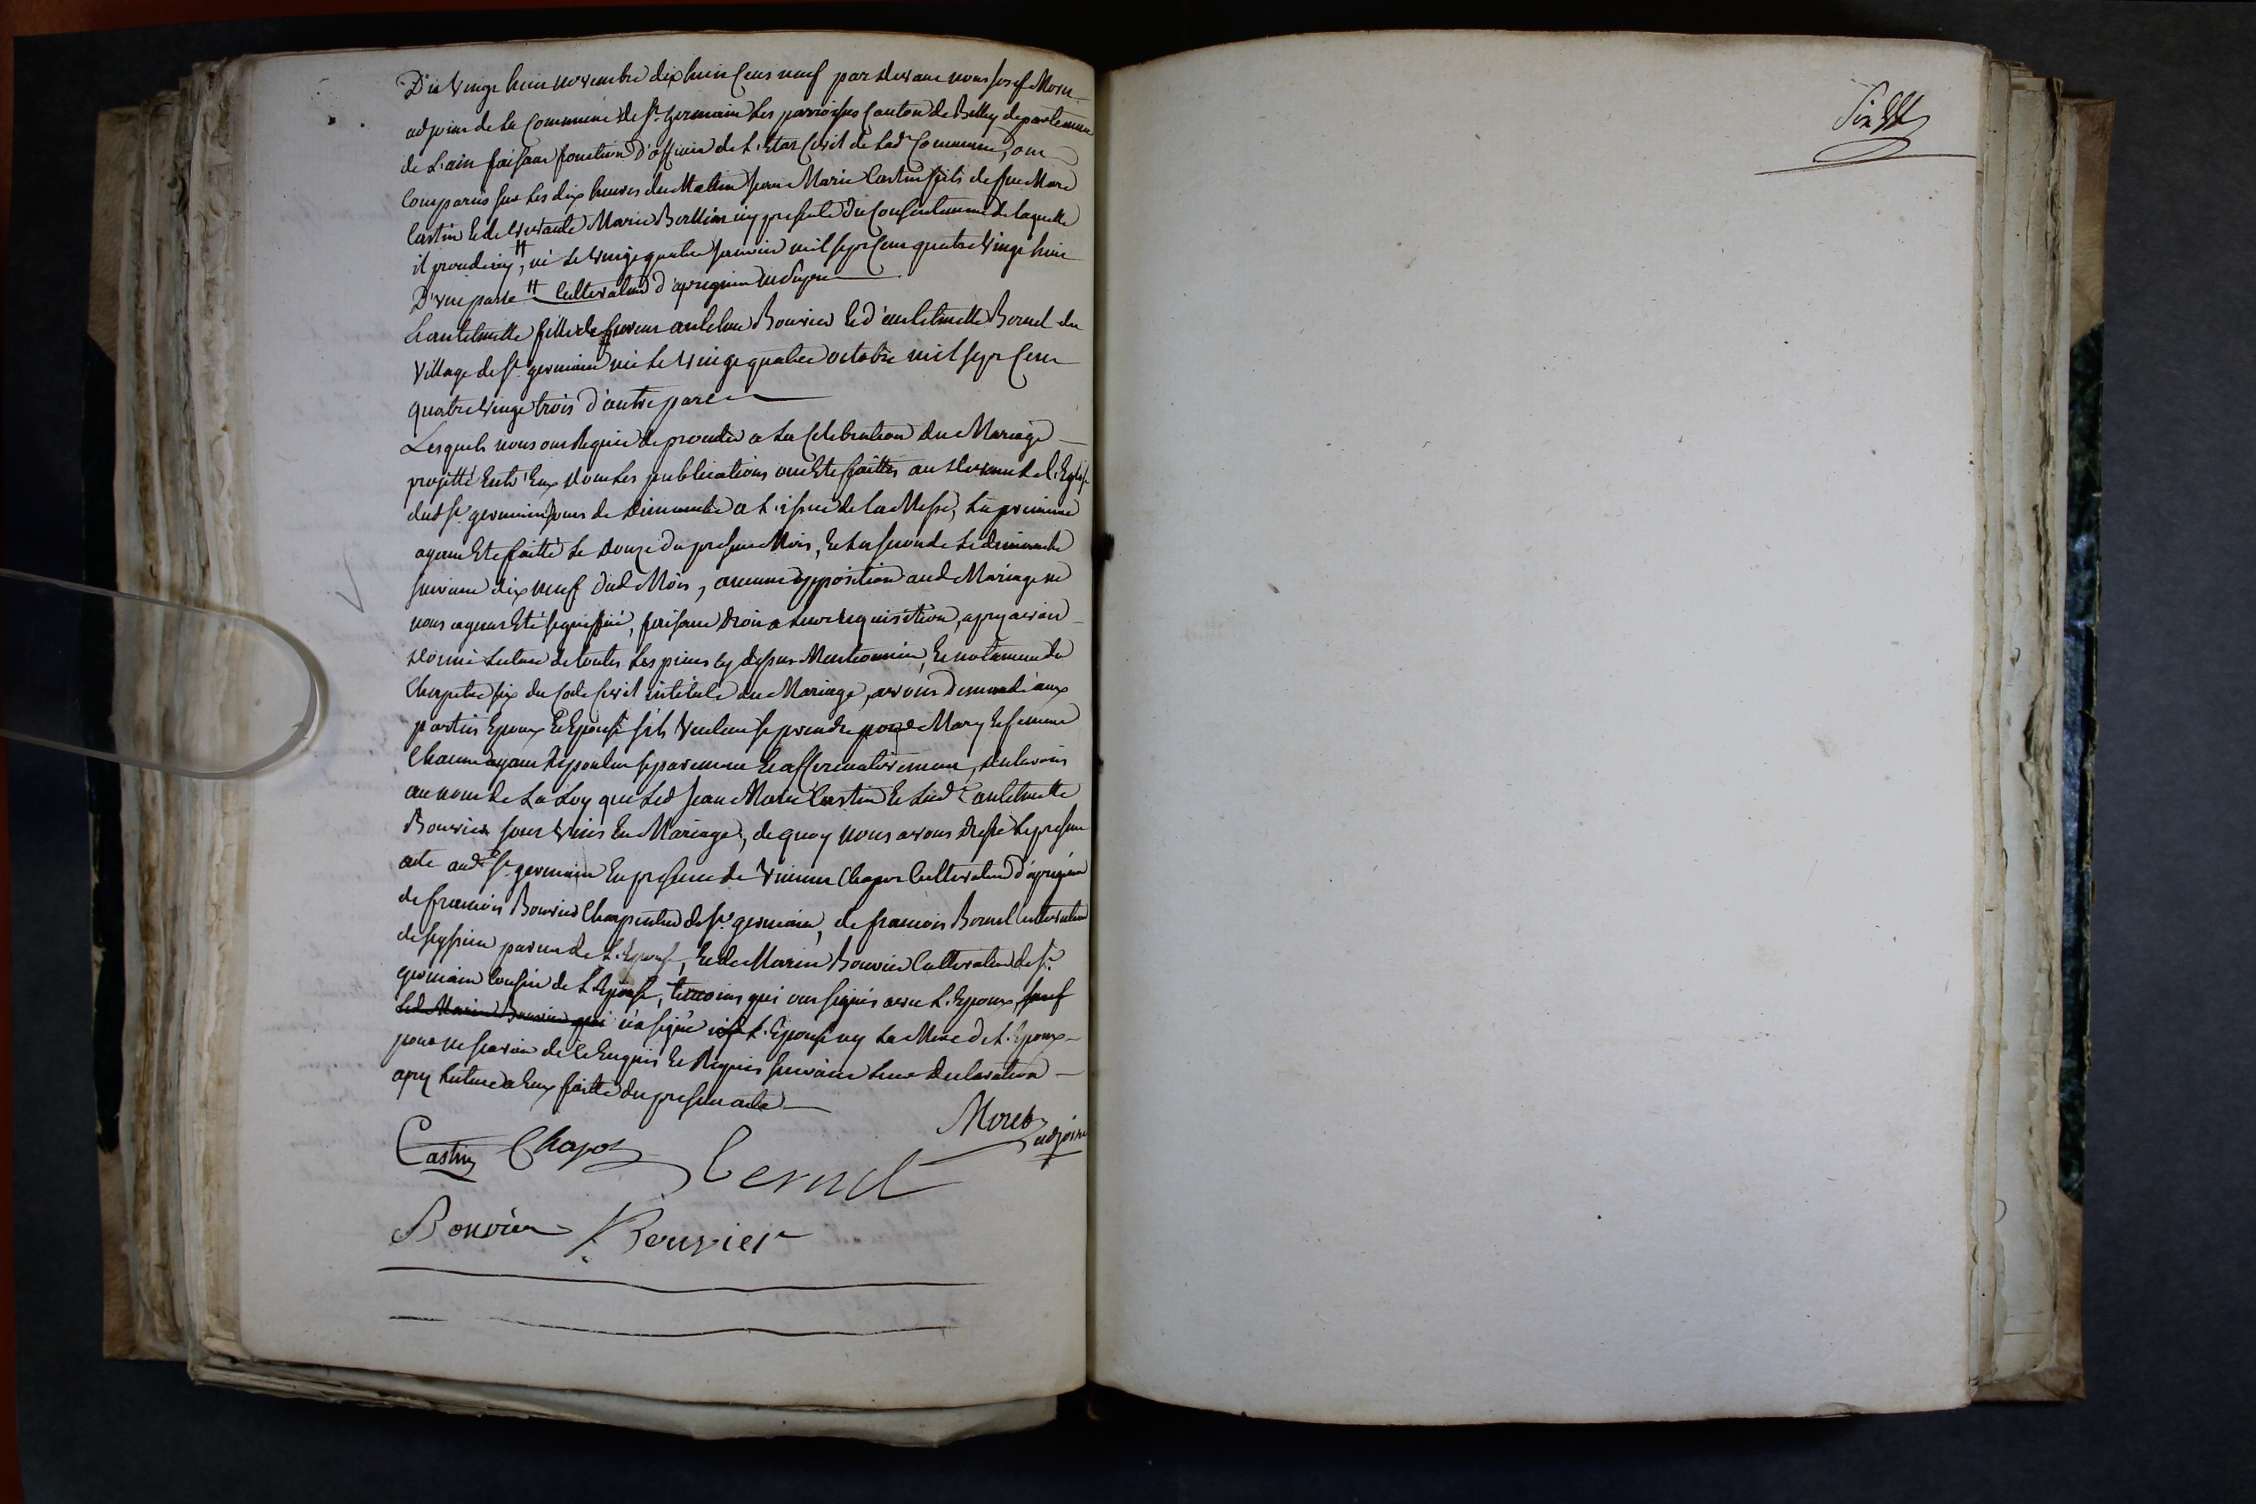 Du Vingt huit novembre dix huit Cent neuf par devant nous Josef Moret
adjoint de La Commune de St. germain Les parroisses Canton de Belley departement
de L'ain faisant fonction d'officier de L'Etat Civil de Lad. Commune, ont
Comparus sur Les dix heures du Matin Jean Marie Castin fils de feu Marc
Castin Et de vivante Marie Berlion icy presente Du Consentement de laquelle
il procede icy #, né Le Vingt quatre Janvier mil sept Cent quatre Vingt huit
D'une part # Cultivateur d'apregnin
Et antelmette fille de antelme Bouvier Et d'antelmette Bernel du
Village de St. germain née Le Vingt quatre octobre mil sept Cent
quatre Vingt trois d'autre part
Lesquels nous ont Requis de proceder a La Celebration du Mariage
projetté Entr'Eux dont Les publications ont Eté faittes au devant de L'Eglise
dud St. germain Jours de dimanche a L'issue de La Messe, La premiere
ayant Eté faitte Le Douze du present Mois, Et La seconde Le dimanche
suivant dix neuf dud Mois, aucune opposition aud Mariage ne
nous ayant Eté signiffiée, faisant Droit a Leur requisition, apry avoir
donné Lecture de toutes Les pieces cy dessus Mentionnées, Et notamment du
Chapitre six du Code Civil intitulé du Mariage, avons demandé aux
parties Epoux Et Epouse s'ils Veulent se prendre pour Mary Et femme
Chacun ayant Repondu separement Et affirmativement, declarons
au nom de La Loy que Led Jean Marie Castin Et Lad. antelmette
Bouvier sont Unis En Mariage, de quoy nous avons dressé Le present
acte aud. St. germain En presence de Vincent Chapot Cultivateur d'apregnin
de francois Bouvier Charpentier de St. germain, de francois Bernel Cultivateur
de parent de L'Epouse, Et de Marin Bouvier Cultivateur de St.
germain Cousin de L'Epouse, temoins qui ont signés avec L'Epoux, sauf
Led Marin Bouvier qui n'a signé L'Epouse ny La Mere de L'Epoux
pour ne savoir de ce Enquis Et Requis suivant Leur declaration
apry Lecture a Eux faitte du present acte
Moret
adjoint
Castin Chapot Bernel
Bouvier Bouvier
Six